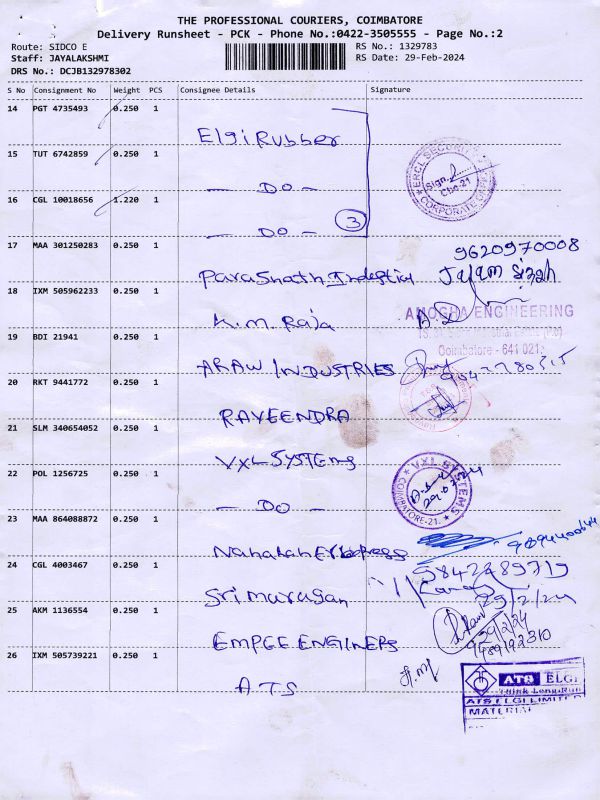 THE PROFESSIONAL COURIERS, COIMBATORE
Delivery Runsheet - PCK - Phone No.:0422-3505555 - Page No.:2
Route: SIDCO E
Staff: JAYALAKSHMI
DRS No.: DCJB132978302
RS No.: 1329783
RS Date: 29-Feb-2024
S No Consignment No Weight PCS Consignee Details Signature
14 PGT 4735493 0.250 1 Elgi Rubber
15 TUT 6742859 0.250 1 - DO -
ERCL SECURITY
Sign.
Cbe-21
CORPORATE OFFICE
16 CGL 10018656 1.220 1 - DO -
3
17 MAA 301250283 0.250 1 Parashnath Indestial
9620970008
18 IXM 505962233 0.250 1 K.M. Raja
AMOGHA ENGINEERING
Coimbatore - 641 021
19 BDI 21941 0.250 1 ARAW INDUSTRIES
20 RKT 9441772 0.250 1 RAVEENDRA
21 SLM 340654052 0.250 1 VXL SYSTEMS
22 POL 1256725 0.250 1 - DO -
VXL SYSTEMS
COIMBATORE-21.
23 MAA 864088872 0.250 1
9894400644
24 CGL 4003467 0.250 1 Sri murugan
9842289719
29/2/24
25 AKM 1136554 0.250 1 EMPEE ENGINERS
29/2/24
9489192310
26 IXM 505739221 0.250 1 ATS
ATS ELGI
Think Long.Run
ATS ELGI LIMITED
MATERIAL